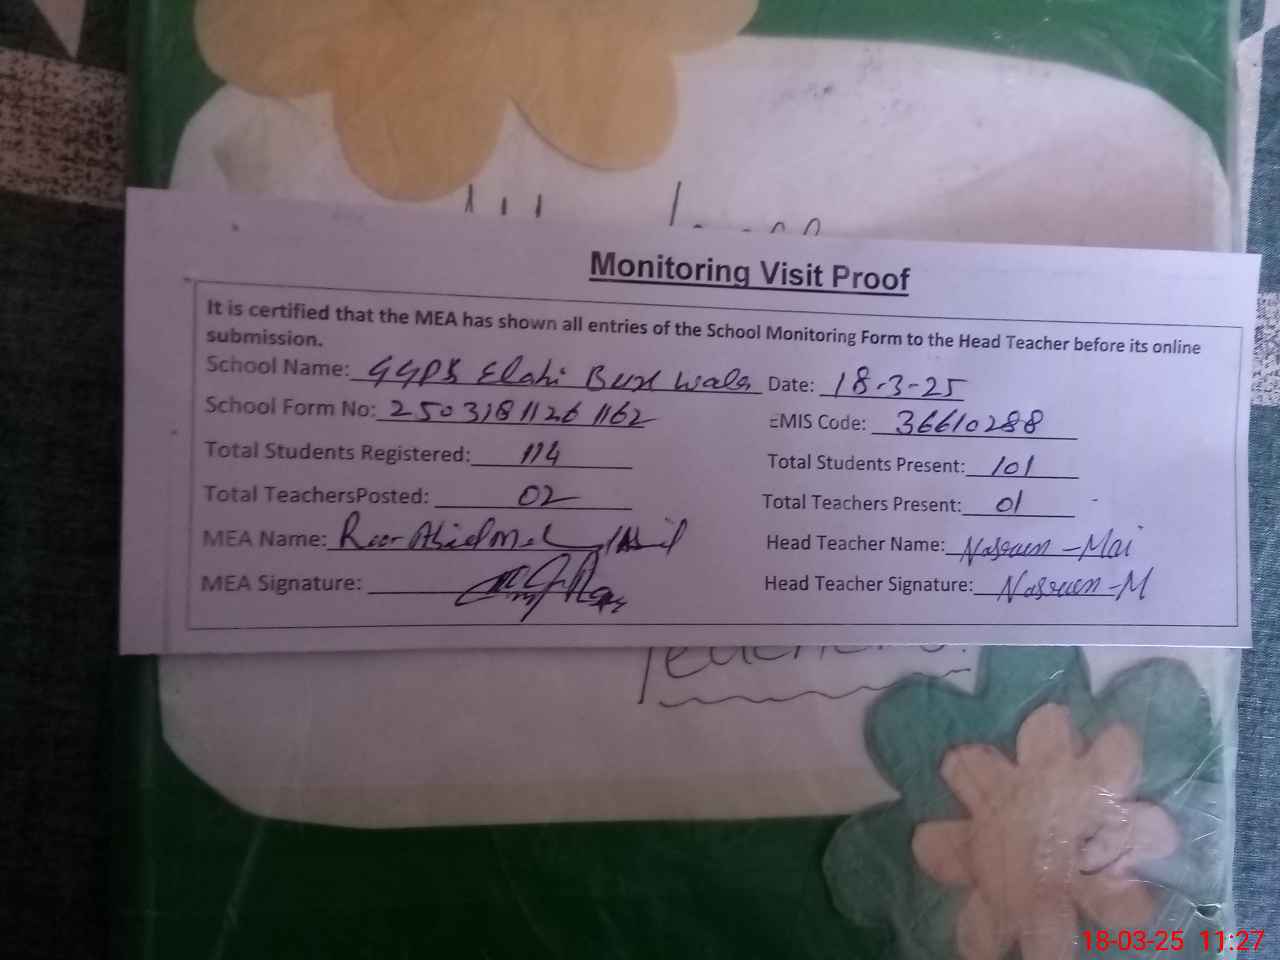 Monitoring Visit Proof
It is certified that the MEA has shown all entries of the School Monitoring Form to the Head Teacher before its online
submission.
School Name: GGPS Elahi Bux Wala Date: 18-3-25
School Form No: 25031811261162 EMIS Code: 36610288
Total Students Registered: 114 Total Students Present: 101
Total TeachersPosted: 02 Total Teachers Present: 01
MEA Name: Head Teacher Name: Nasreen-Mai
MEA Signature: Head Teacher Signature: Nasreen-M
18-03-25 11:27